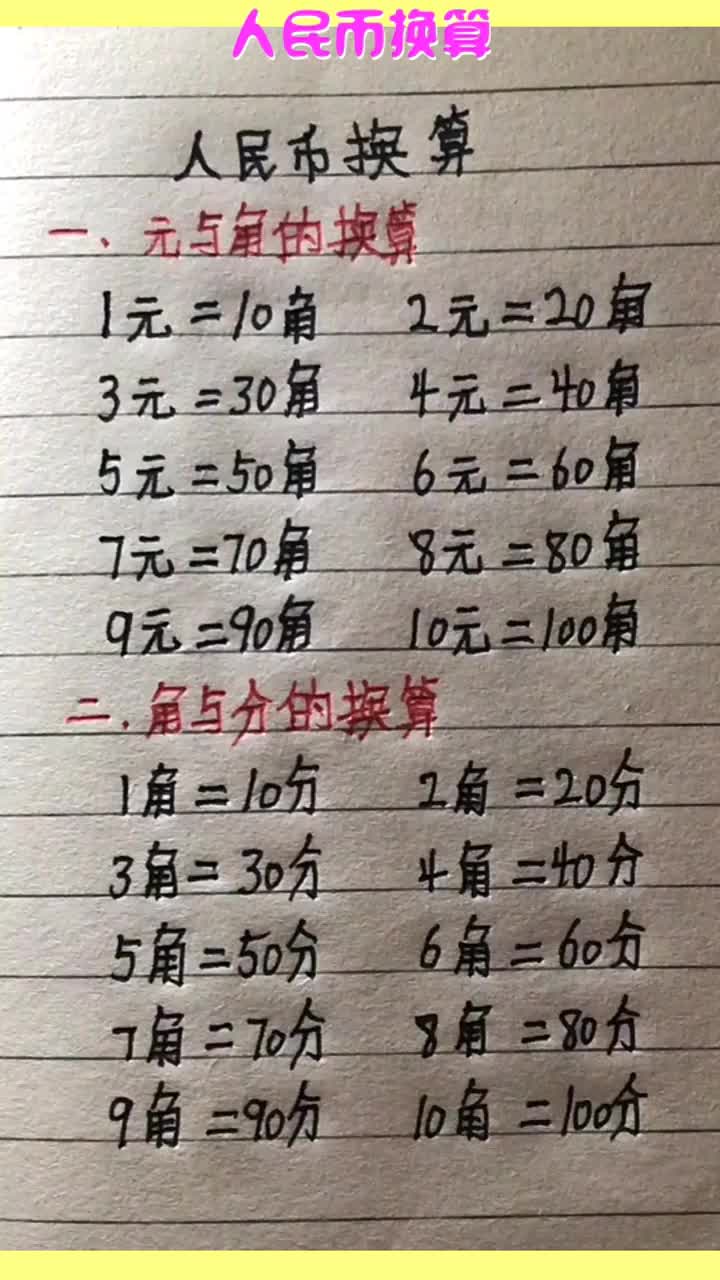 人民币换算
人民币换算
一、元与角的换算
1元=10角 2元=20角
3元=30角 4元=40角
5元=50角 6元=60角
7元=70角 8元=80角
9元=90角 10元=100角
二、角与分的换算
1角=10分 2角=20分
3角=30分 4角=40分
5角=50分 6角=60分
7角=70分 8角=80分
9角=90分 10角=100分